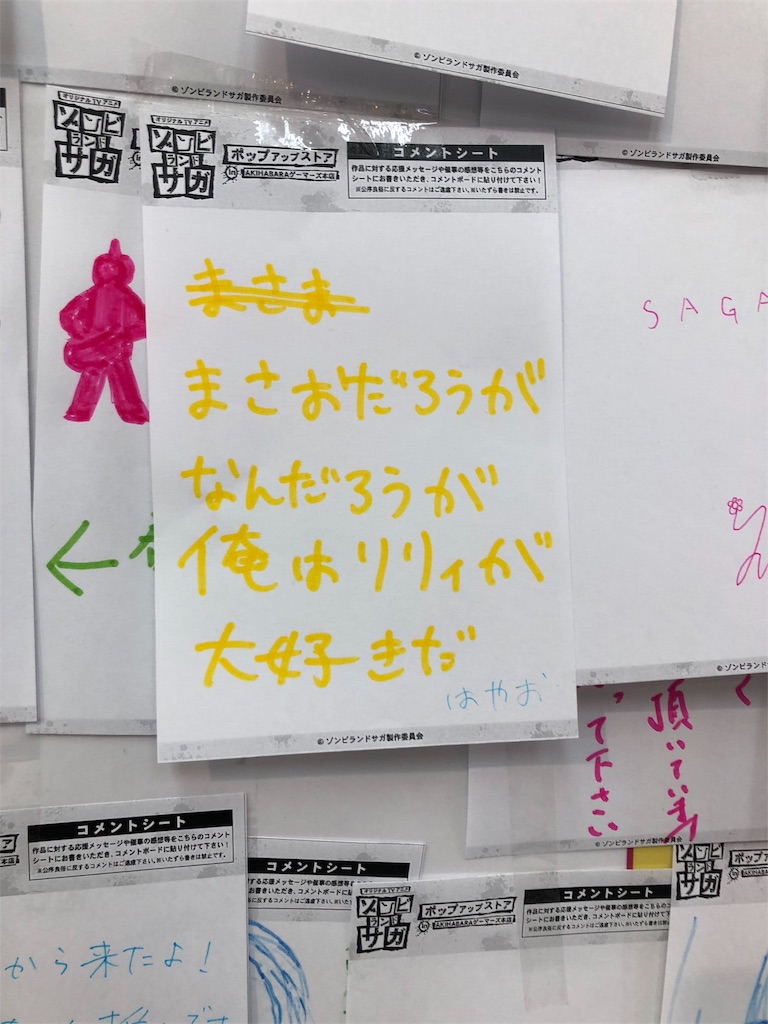 ©ゾンビランドサガ製作委員会
©ゾンビランドサガ製作委員会
©ゾンビランドサガ製作委員会
オリジナルTVアニメ
ゾンビ
ランド
サガ
ゾンビ
ランド
サガ
ポップアップストア
in AKIHABARAゲーマーズ本店
コメントシート
作品に対する応援メッセージや催事の感想等をこちらのコメント
シートにお書きいただき、コメントボードに貼り付けて下さい!
※公序良俗に反するコメントはご遠慮下さい。※いたずら書きは禁止です。
まさま
まさおだろうが
なんだろうが
俺はリリィが
大好きだ
はやお
©ゾンビランドサガ製作委員会
SAGA
©ゾンビランドサガ製作委員会
く
頂いています
って下さい
©ゾンビランドサガ製作委員会
本店
コメントシート
作品に対する応援メッセージや催事の感想等をこちらのコメント
シートにお書きいただき、コメントボードに貼り付けて下さい!
※公序良俗に反するコメントはご遠慮下さい。※いたずら書きは禁止です。
から来たよ!
コメントシート
対する応援メッセージや催事の感想等をこちらのコメント
オリジナルTVアニメ
ゾンビ
ランド
サガ
ポップアップストア
in AKIHABARAゲーマーズ本店
コメントシート
作品に対する応援メッセージや催事の感想等をこちらの
シートにお書きいただき、コメントボードに貼り付けて下
※公序良俗に反するコメントはご遠慮下さい。※いたずら書きは禁
ゾンビ
ランド
サガ
ポップア
in AKIHABARA